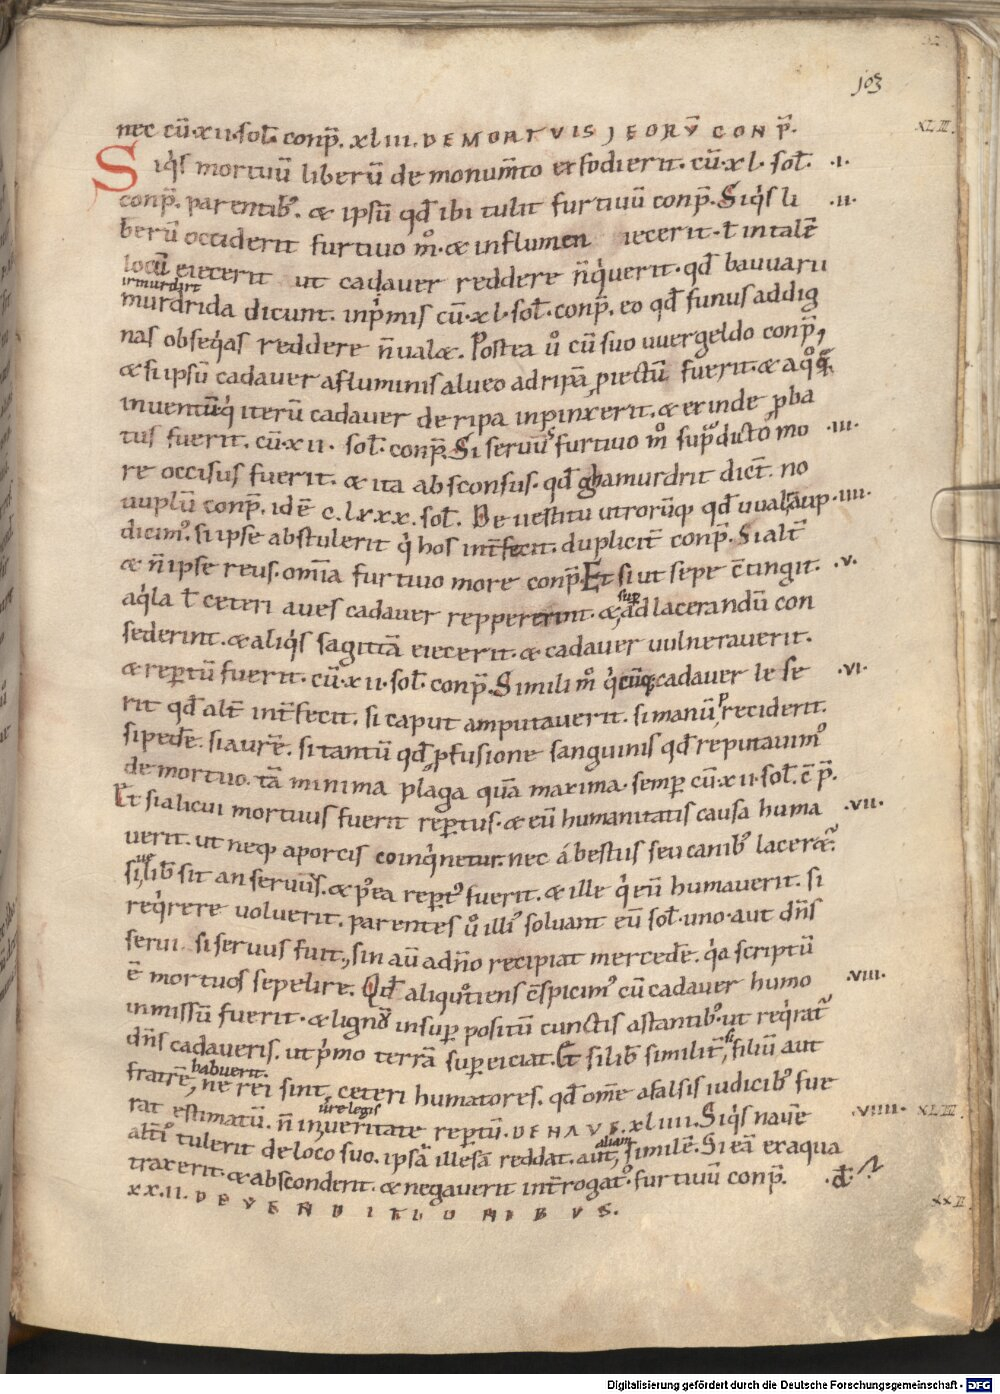 103
nec cū·xii·sol̄ conp̄. xLIII. DE MORTVIS ⁊ EORV̄ CONP̄.
XLIII.
Siq́s mortuū liberū de monum̄to exfodierit. cū·xl·sol̄. ·i·
conp̄. parentib; & ipsū qđ ibi tulit furtiuū conp̄. Siq́s li ·ii·
berū occiderit furtiuo m̊·& in flumen iecerit·ł in talē
locū eiecerit ut cadauer reddere n̄ q́uerit·qđ bauuarii
murdrida dicunt. inṕmis cū·xl·sol̄·conp̄. eo qđ funus ad dig
nas obseq́as reddere n̄ ualæ. Postea ů cū suo uuergeldo conp̄,
& si ipsū cadauer a fluminis alueo ad ripā ꝓiectū fuerit·& a q̊q̊;
inuentū q́ iterū cadauer de ripa inpinxerit. & exinde ꝓba
tus fuerit. cū·xii· sol̄ conp̄. Si seruus furtiuo m̊ sup̄dicto mo ·iii·
re occisus fuerit. & ita absconsus·qđ ghamurdrit dict̄. no
uuplū conp̄. id ē c.lxxx.sol̄. De uestitu utrorūq; qđ uualaup ·iiii·
dicim᷒. si ipse abstulerit q́ hos int̄fecit. duplicit̄ conp̄. Si alt̄
& n̄ ipse reus. om̄ia furtiuo more conp̄. Et si ut sepe c̄tingit. ·v·
aq́la ł ceteri aues cadauer reppererint. & sup ad lacerandū con
sederint. & aliq́s sagittā eiecerit. & cadauer uulnerauerit.
& rep̱tū fuerit. cū·xii·sol̄·conp̄. Simili m̊ q́cūq; cadauer lese ·vi·
rit qđ alt̄ int̄fecit. si caput amputauerit. si manū p̱reciderit.
si pedē. si aurē. si tantū qđ ꝓfusione sanguinis qđ reputauim᷒
de mortuo. tā minima plaga quā maxima·semp̱ cū·xii·sol̄. c̄p̄.
Et si alicui mortuus fuerit rep̱tus·& eū humanitatis causa huma ·vii·
uerit. ut neq; a porcis coinq́netur. nec á bestiis seu canib; laceræ̃.
siue lib̄ sit an seruus. & p᷒ea rep̱t᷒ fuerit. & ille q́ eū humauerit. si
req́rere uoluerit. parentes ů illi᷒ soluant eū sol̄·uno·aut dn̄s
serui. si seruus fuit., sin aū ad n̄o recipiat mercedē. q́a scriptū
ē mortuos sepelire. Qđ aliquotiens c̄spicim᷒ cū cadauer humo ·viii·
inmissū fuerit·& lignū insup̱ positū cunctis astantib;·ut req́rat᷑
dn̄s cadaueris. ut ṕmo terrā sup̱eiciat. Et si lib̄ similit̄, si filiū aut
fratrē, habuerit. ne rei sint, ceteri humatores. qđ om̄e a falsis iudicib; fue
rat estimatū. n̄ in ueritate ūre legis rep̱tū. DE NAVE. xliiii. Siq́s nauē ·viiii· XLIIII.
alt̄i᷒ tulerit de loco suo. ipsā illesā reddat. aut, aliam similē. Si eā ex aqua
traxerit. & absconderit. & negauerit int̄rogat᷒. furtiuū conp̄.
xx.ii. DE VENDITIONIBVS.
XXII
Digitalisierung gefördert durch die Deutsche Forschungsgemeinschaft · DFG